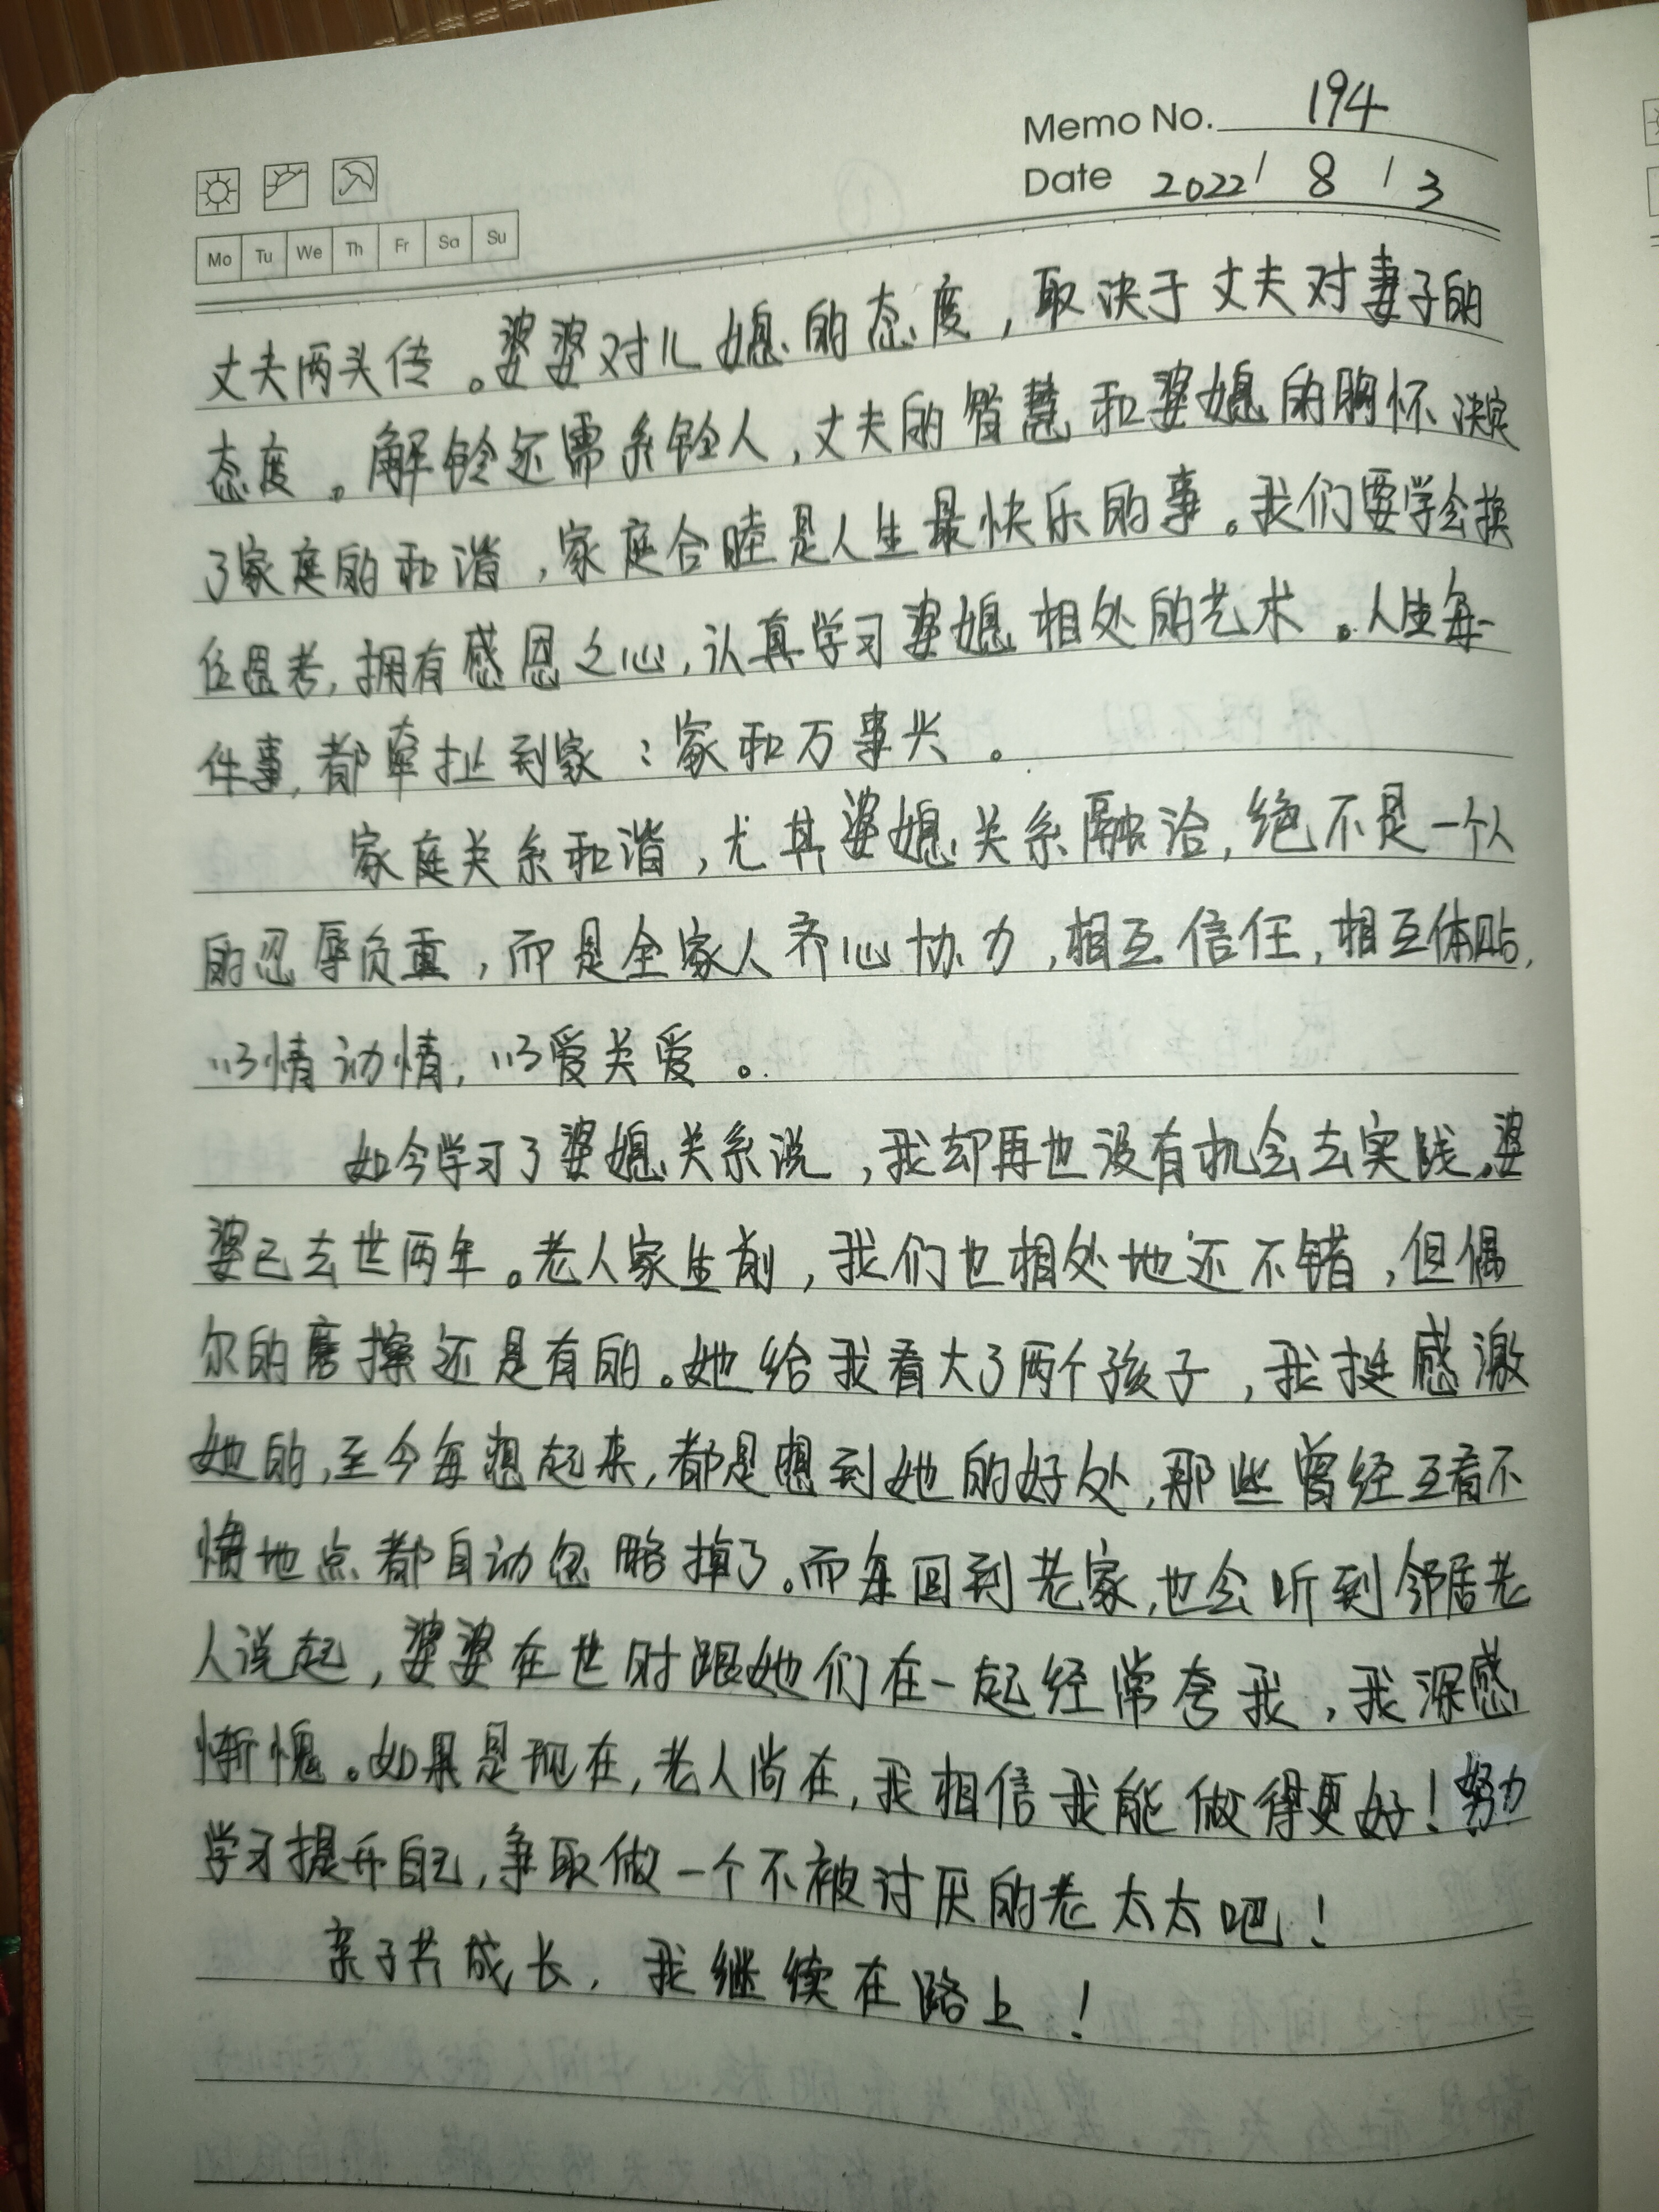 Memo No. 194
Date 2022 / 8 / 3
Mo Tu We Th Fr Sa Su
丈夫两头传。婆婆对儿媳的态度，取决于丈夫对妻子的
态度。解铃还需系铃人，丈夫的智慧和婆媳的胸怀决定
了家庭的和谐，家庭合睦是人生最快乐的事。我们要学会换
位思考，拥有感恩之心，认真学习婆媳相处的艺术。人生每一
件事，都牵扯到家：家和万事兴。
家庭关系和谐，尤其婆媳关系融洽，绝不是一个人
的忍辱负重，而是全家人齐心协力，相互信任，相互体贴，
以情动情，以爱关爱。
如今学习了婆媳关系说，我却再也没有机会去实践，婆
婆已去世两年。老人家生前，我们也相处地还不错，但偶
尔的磨擦还是有的。她给我看大了两个孩子，我挺感激
她的，至今每想起来，都是想到她的好处，那些曾经互看不
惯地点都自动忽略掉了。而每回到老家，也会听到邻居老
人说起，婆婆在世时跟她们在一起经常夸我，我深感
惭愧。如果是现在，老人尚在，我相信我能做得更好！努力
学习提升自己，争取做一个不被讨厌的老太太吧！
亲子共成长，我继续在路上！